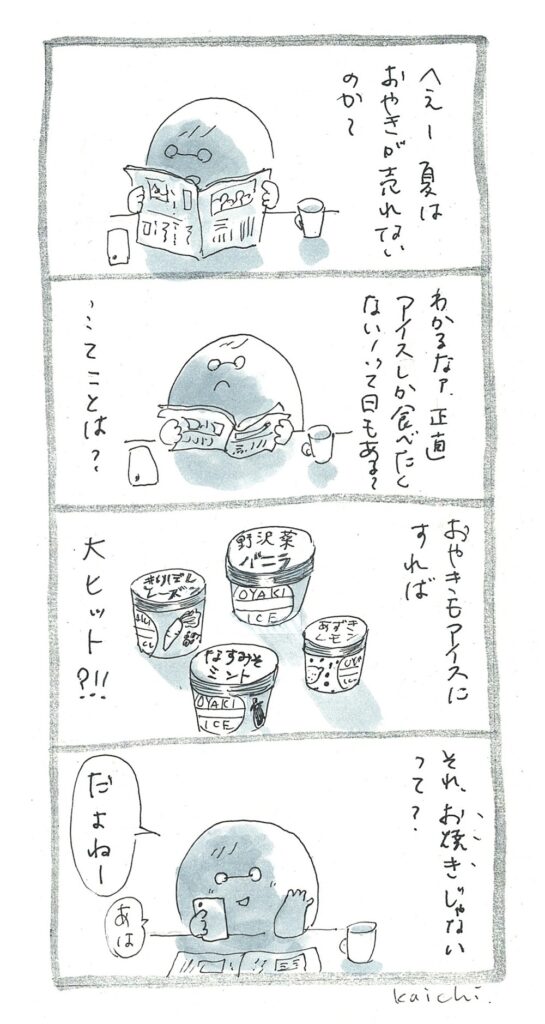 へえー 夏は
おやきが売れない
のか〜
わかるなァ、正直
アイスしか食べたく
ない!って日もある〜
…てことは?
おやきもアイスに
すれば
大ヒット?!!
野沢菜
バニラ
OYAKI
ICE
きりぼし
レーズン
あずき
レモン
なすみそ
ミント
OYAKI
ICE
それ、お焼きじゃない
って?
だよねー
あは
kaichi.